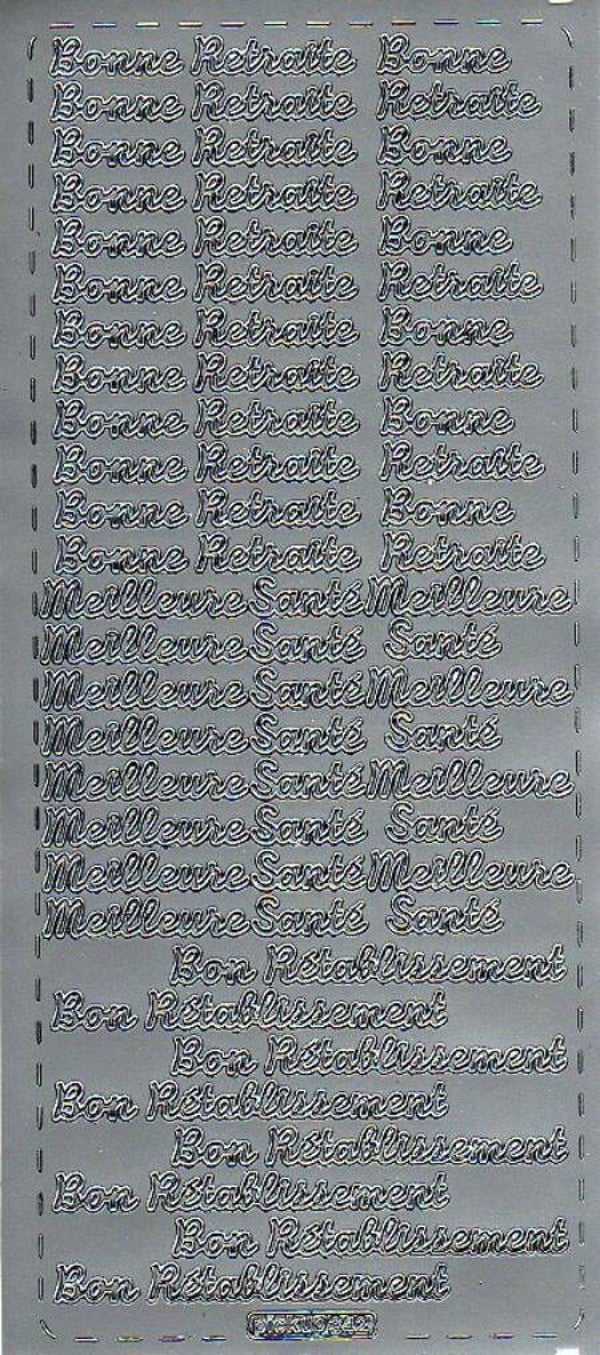 Bonne Retraite Bonne
Bonne Retraite Retraite
Bonne Retraite Bonne
Bonne Retraite Retraite
Bonne Retraite Bonne
Bonne Retraite Retraite
Bonne Retraite Bonne
Bonne Retraite Retraite
Bonne Retraite Bonne
Bonne Retraite Retraite
Bonne Retraite Bonne
Bonne Retraite Retraite
Meilleure Santé Meilleure
Meilleure Santé Santé
Meilleure Santé Meilleure
Meilleure Santé Santé
Meilleure Santé Meilleure
Meilleure Santé Santé
Meilleure Santé Meilleure
Meilleure Santé Santé
Bon Rétablissement
Bon Rétablissement
Bon Rétablissement
Bon Rétablissement
Bon Rétablissement
Bon Rétablissement
Bon Rétablissement
Bon Rétablissement